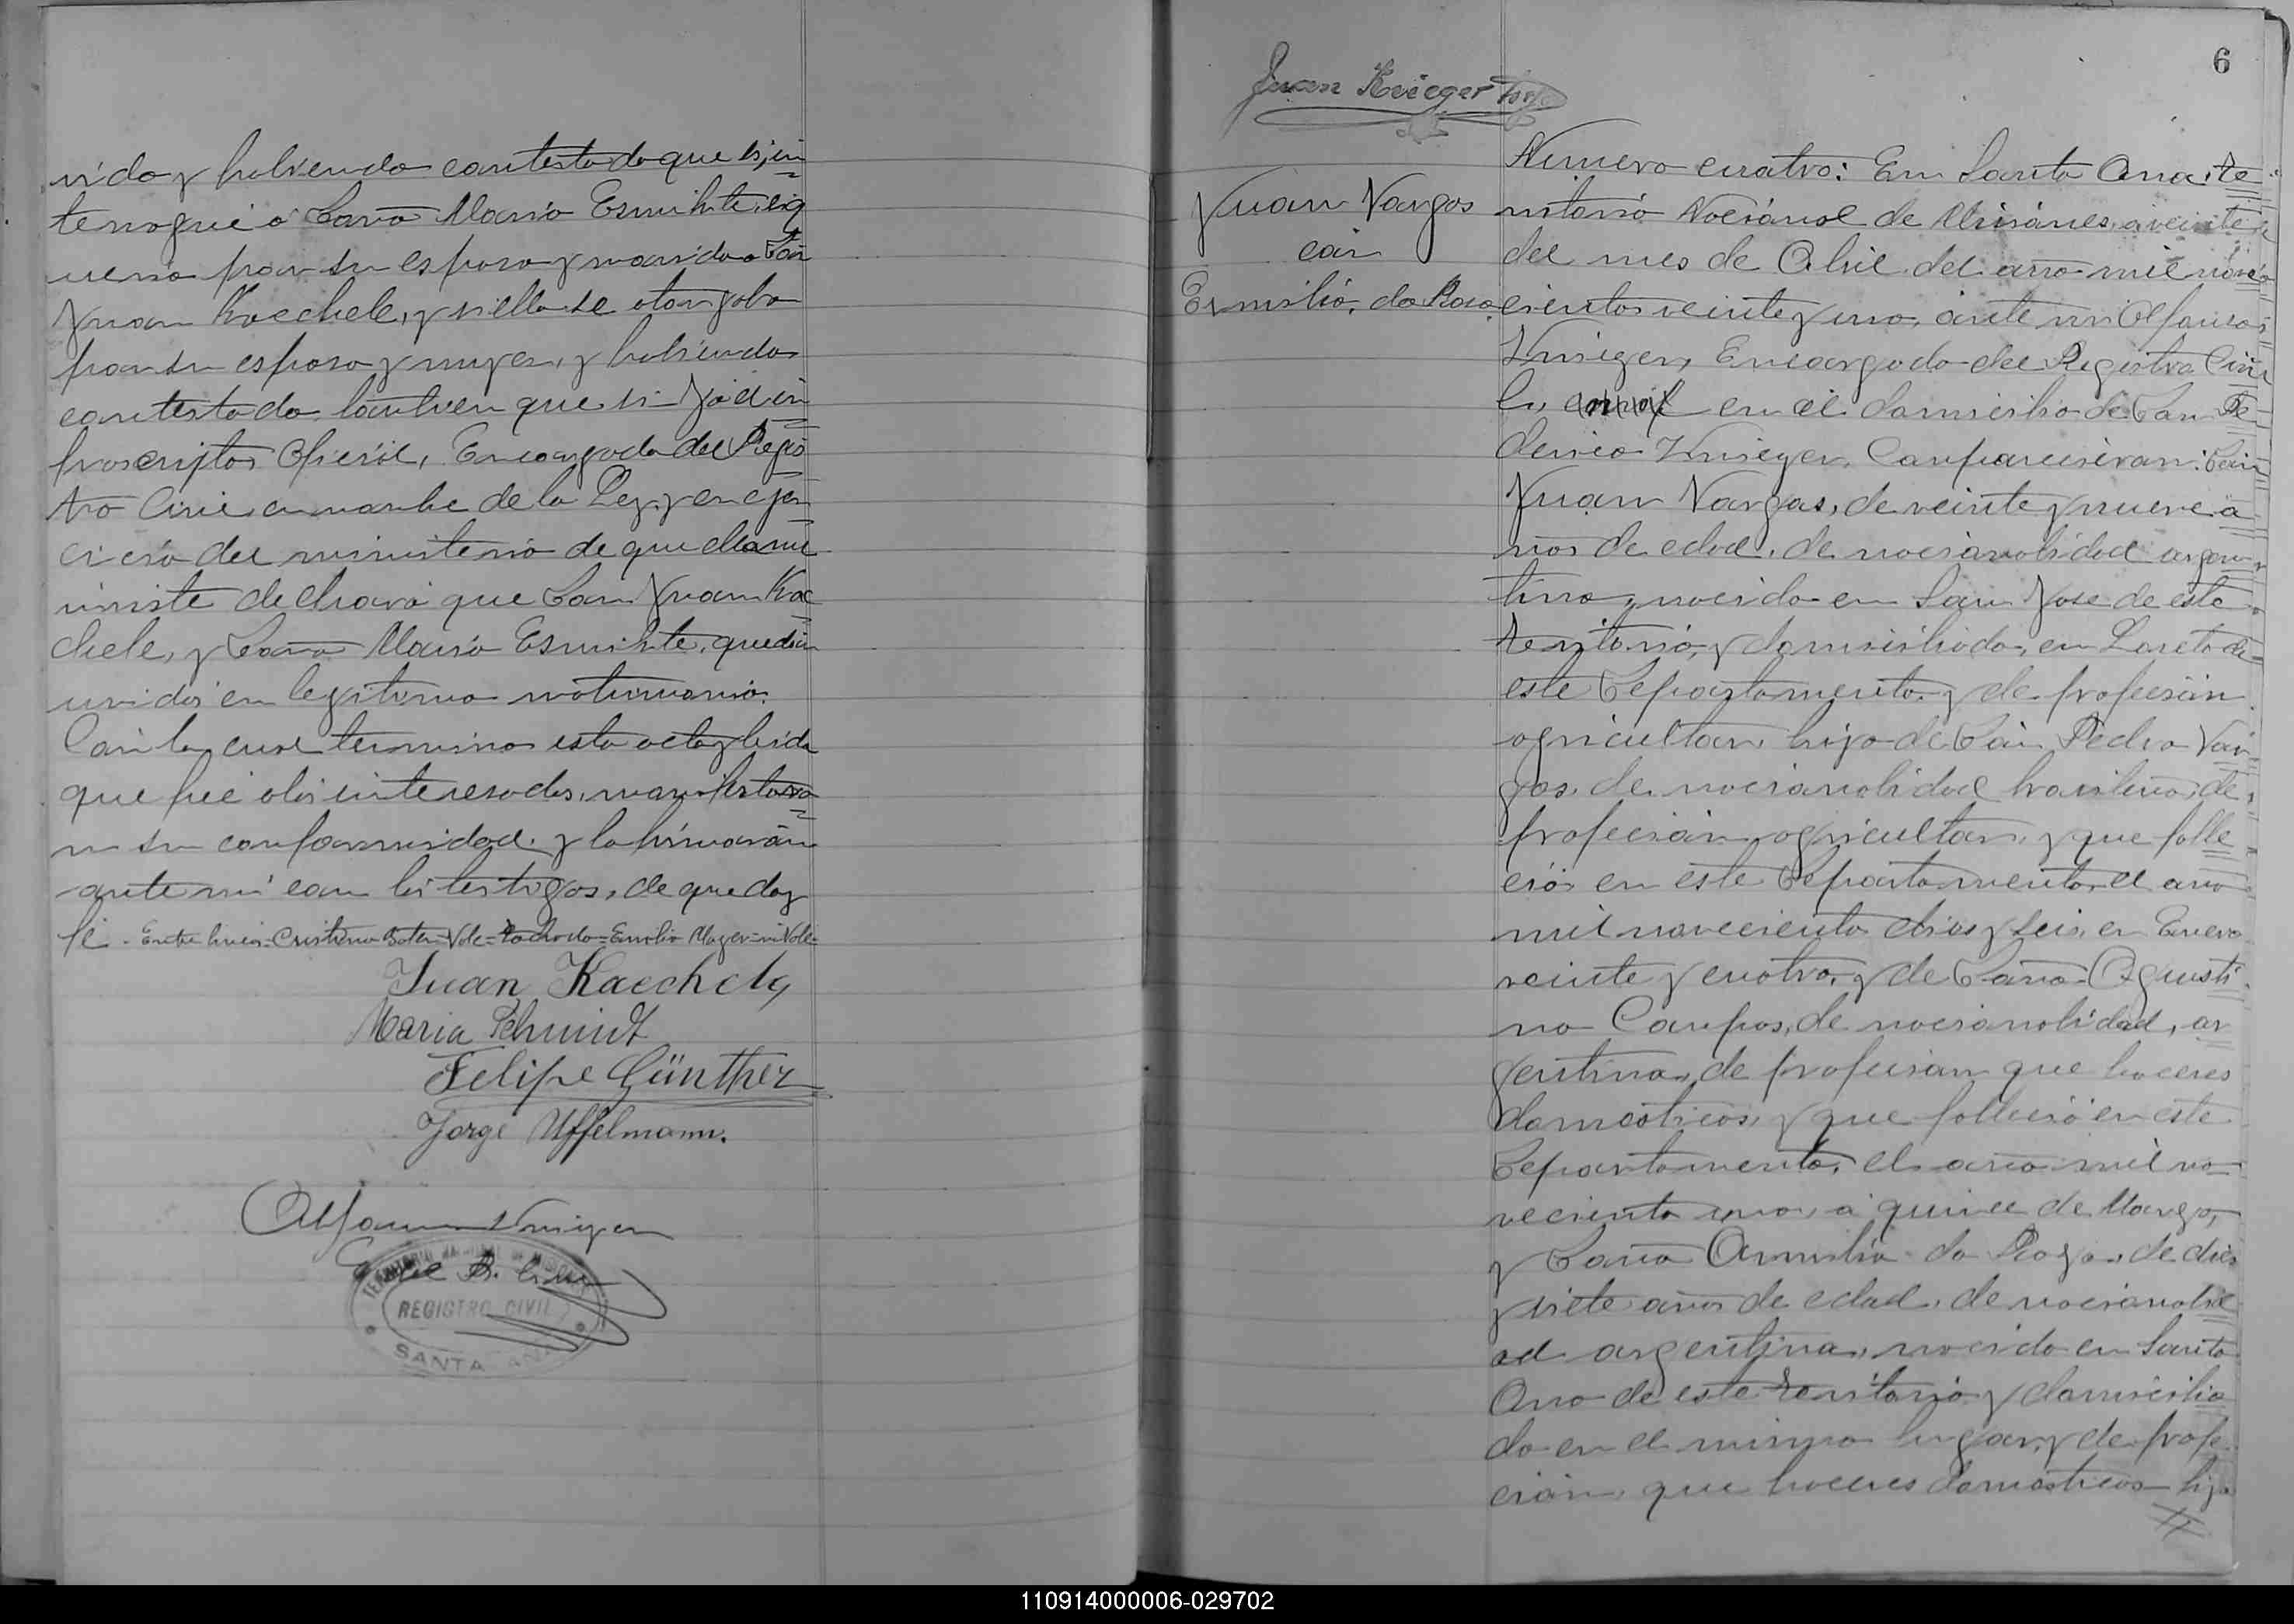 rido y habiendo contestado que si, in
terrogué a Doña Maria Esmihte, si q
ueria por su esposo y marido a Don
Juan Kaechele, y si ella se otorgaba
por su esposa y mujer, y habiendo
contestado tambien que si Yo el in
frascripto Oficial, Encargado del Regis
tro Civil, en nombre de la Ley, y en ejer
cicio del ministerio de que ella me
inviste declaro que Don Juan Kae
chele, y Doña Maria Esmihte, quedan
unidos en legitimo matrimonio.
Con lo cual termino esta acta y leida
que fué a los interesados, manifestaro
n su conformidad, y la firmarán
ante mi con los testigos, de que doy
fé. Entre lineas = Cristina = Vale = Tachado = Emilia Mayer = ni Vale =
Juan Kaechely
Maria Schmidt
Felipe Günther
Jorge Uffelmann.
Alfonso Krieger
TERRITORIO NACIONAL DE MISIONES
REGISTRO CIVIL
SANTA ANA
6
Juan Krieger
Juan Vargas
con
Ermilia, da Rosa
Numero cuatro: En Santa Ana, te
rritorio Nacional de Misiones, a veinte
del mes de Abril del año mil nove
cientos veinte y uno, ante mi Alfonso
Krieger, Encargado del Registro Civi
l, en el domicilio de Don Fe
derico Krieger, Comparecieron: Don
Juan Vargas, de veinte y nueve a
ños de edad, de nacionalidad argen
tino, nacido en San Jose de este
territorio, y domiciliado, en Loreto de
este Departamento y de profesión
agricultor, hijo de Don Pedro Var
gas, de nacionalidad brasilero, de
profeción agricultor, y que falle
ció en este Departamento, el año
mil novecientos dies y seis, en Enero
veinte y cuatro, y de Doña Agusti
na Campos, de nacionalidad, ar
gentina, de profecion que haceres
domesticos, y que falleció en este
Departamento, el año mil no
veciento uno, a quince de Marzo,
y Doña Ermilia da Rosa, de dies
y siete años de edad, de nacionalid
ad argentina, nacida en Santa
Ana de este territorio y domicilia
da en el mismo lugar, y de profe
ción, que haceres domesticos hija
110914000006-029702